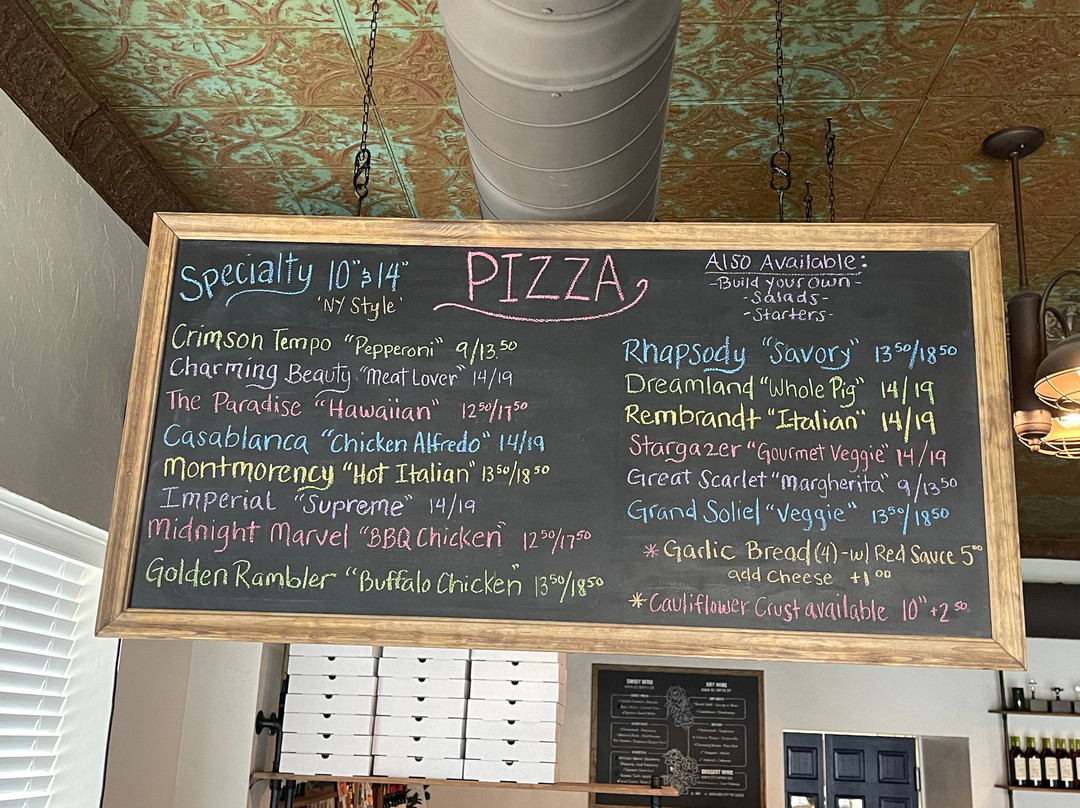 Specialty 10" & 14"
'NY Style'
PIZZA
Also Available:
-Build your Own-
-Salads-
-Starters-
Crimson Tempo "Pepperoni" 9/13.50
Charming Beauty "Meat Lover" 14/19
The Paradise "Hawaiian" 12 50/17 50
Casablanca "Chicken Alfredo" 14/19
Montmorency "Hot Italian" 13 50/18 50
Imperial "Supreme" 14/19
Midnight Marvel "BBQ Chicken" 12 50/17 50
Golden Rambler "Buffalo Chicken" 13 50/18 50
Rhapsody "Savory" 13 50/18 50
Dreamland "Whole Pig" 14/19
Rembrandt "Italian" 14/19
Stargazer "Gourmet Veggie" 14/19
Great Scarlet "Margherita" 9/13 50
Grand Soliel "Veggie" 13 50/18 50
* Garlic Bread (4) - w/ Red Sauce 5 00
add cheese +1 00
* Cauliflower Crust available 10" +2 50
SWEET WINE
DRY WINE
DESSERT WINE